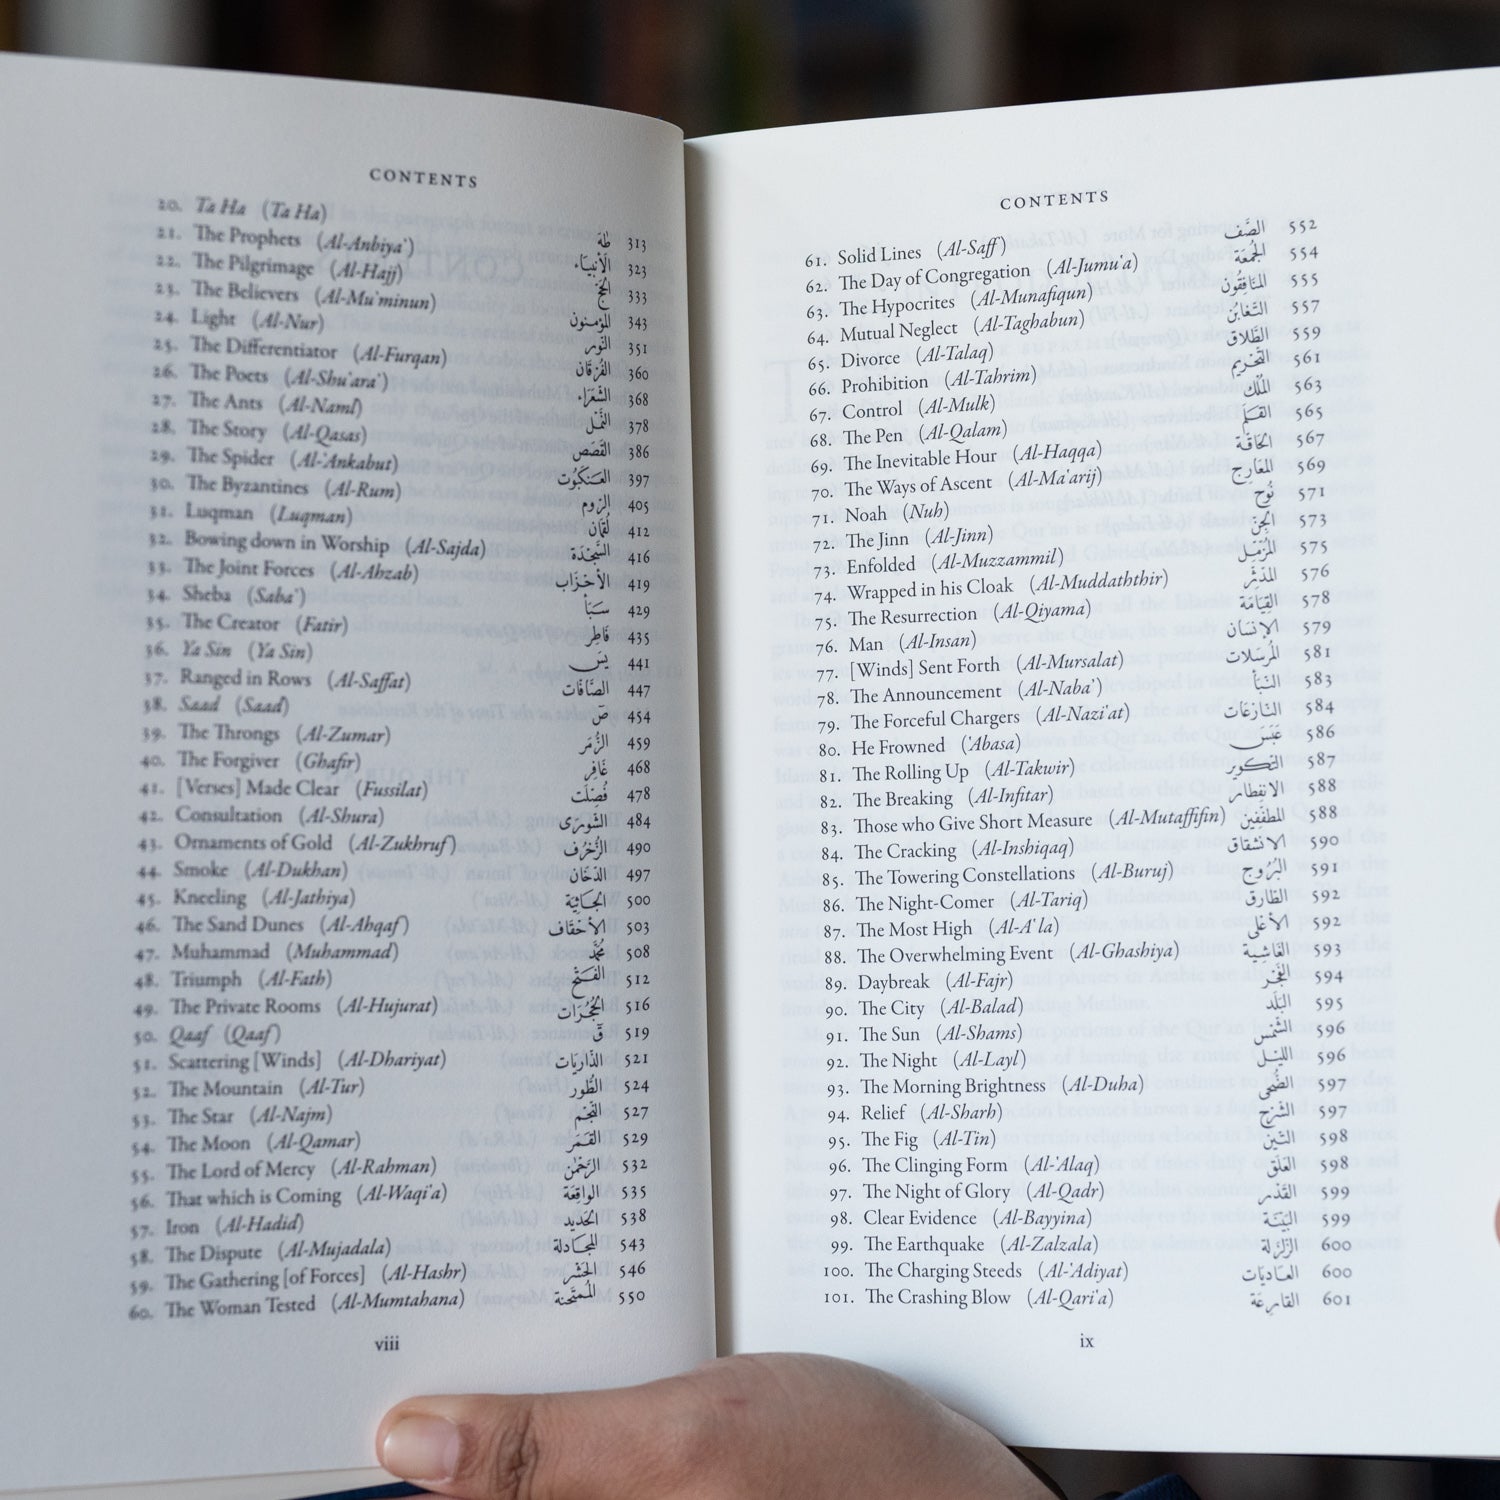 CONTENTS
20. Ta Ha (Ta Ha) طٰهَ 313
21. The Prophets (Al-Anbiya') الأنبيَاء 323
22. The Pilgrimage (Al-Hajj) الحَجّ 333
23. The Believers (Al-Mu'minun) المؤمنون 343
24. Light (Al-Nur) النّور 351
25. The Differentiator (Al-Furqan) الفُرقَان 360
26. The Poets (Al-Shu'ara') الشّعَرَاء 368
27. The Ants (Al-Naml) النَّمْل 378
28. The Story (Al-Qasas) القَصَص 386
29. The Spider (Al-'Ankabut) العَنكبُوت 397
30. The Byzantines (Al-Rum) الرّوم 405
31. Luqman (Luqman) لقمَان 412
32. Bowing down in Worship (Al-Sajda) السَّجْدَة 416
33. The Joint Forces (Al-Ahzab) الأحْزَاب 419
34. Sheba (Saba') سَبَأ 429
35. The Creator (Fatir) فَاطِر 435
36. Ya Sin (Ya Sin) يسَ 441
37. Ranged in Rows (Al-Saffat) الصَّافَات 447
38. Saad (Saad) صَ 454
39. The Throngs (Al-Zumar) الزُّمَر 459
40. The Forgiver (Ghafir) غَافِر 468
41. [Verses] Made Clear (Fussilat) فُصِّلَت 478
42. Consultation (Al-Shura) الشّورى 484
43. Ornaments of Gold (Al-Zukhruf) الزُّخرُف 490
44. Smoke (Al-Dukhan) الدّخَان 497
45. Kneeling (Al-Jathiya) الجَاثِيَة 500
46. The Sand Dunes (Al-Ahqaf) الأحْقَاف 503
47. Muhammad (Muhammad) مُحَمَّد 508
48. Triumph (Al-Fath) الفَتْح 512
49. The Private Rooms (Al-Hujurat) الحُجُرَات 516
50. Qaaf (Qaaf) قَ 519
51. Scattering [Winds] (Al-Dhariyat) الذّاريَات 521
52. The Mountain (Al-Tur) الطُّور 524
53. The Star (Al-Najm) النّجْم 527
54. The Moon (Al-Qamar) القَمَر 529
55. The Lord of Mercy (Al-Rahman) الرَّحْمٰن 532
56. That which is Coming (Al-Waqi'a) الواقِعَة 535
57. Iron (Al-Hadid) الحَديد 538
58. The Dispute (Al-Mujadala) المجَادلة 543
59. The Gathering [of Forces] (Al-Hashr) الحَشْر 546
60. The Woman Tested (Al-Mumtahana) المُمتَحنَة 550
viii
CONTENTS
61. Solid Lines (Al-Saff) الصَّف 552
62. The Day of Congregation (Al-Jumu'a) الجُمعَة 554
63. The Hypocrites (Al-Munafiqun) المنَافِقُون 555
64. Mutual Neglect (Al-Taghabun) التّغَابُن 557
65. Divorce (Al-Talaq) الطَّلاق 559
66. Prohibition (Al-Tahrim) التّحْريم 561
67. Control (Al-Mulk) المُلْك 563
68. The Pen (Al-Qalam) القَلَم 565
69. The Inevitable Hour (Al-Haqqa) الحَاقَّة 567
70. The Ways of Ascent (Al-Ma'arij) المعَارِج 569
71. Noah (Nuh) نُوح 571
72. The Jinn (Al-Jinn) الجِنّ 573
73. Enfolded (Al-Muzzammil) المُزّمِّل 575
74. Wrapped in his Cloak (Al-Muddaththir) المدَّثِّر 576
75. The Resurrection (Al-Qiyama) القِيَامَة 578
76. Man (Al-Insan) الإنسَان 579
77. [Winds] Sent Forth (Al-Mursalat) المُرسَلات 581
78. The Announcement (Al-Naba') النَّبَأ 583
79. The Forceful Chargers (Al-Nazi'at) النَّازعَات 584
80. He Frowned ('Abasa) عَبَسَ 586
81. The Rolling Up (Al-Takwir) التكوير 587
82. The Breaking (Al-Infitar) الانفطار 588
83. Those who Give Short Measure (Al-Mutaffifin) المطفّفِين 588
84. The Cracking (Al-Inshiqaq) الانشقاق 590
85. The Towering Constellations (Al-Buruj) البُرُوج 591
86. The Night-Comer (Al-Tariq) الطارق 592
87. The Most High (Al-A'la) الأعْلى 592
88. The Overwhelming Event (Al-Ghashiya) الغَاشية 593
89. Daybreak (Al-Fajr) الفَجْر 594
90. The City (Al-Balad) البَلَد 595
91. The Sun (Al-Shams) الشّمْس 596
92. The Night (Al-Layl) الليْل 596
93. The Morning Brightness (Al-Duha) الضُّحى 597
94. Relief (Al-Sharh) الشَّرْح 597
95. The Fig (Al-Tin) التِّين 598
96. The Clinging Form (Al-'Alaq) العَلَق 598
97. The Night of Glory (Al-Qadr) القَدْر 599
98. Clear Evidence (Al-Bayyina) البَيّنَة 599
99. The Earthquake (Al-Zalzala) الزلزلة 600
100. The Charging Steeds (Al-'Adiyat) العَاديَات 600
101. The Crashing Blow (Al-Qari'a) القَارعَة 601
ix